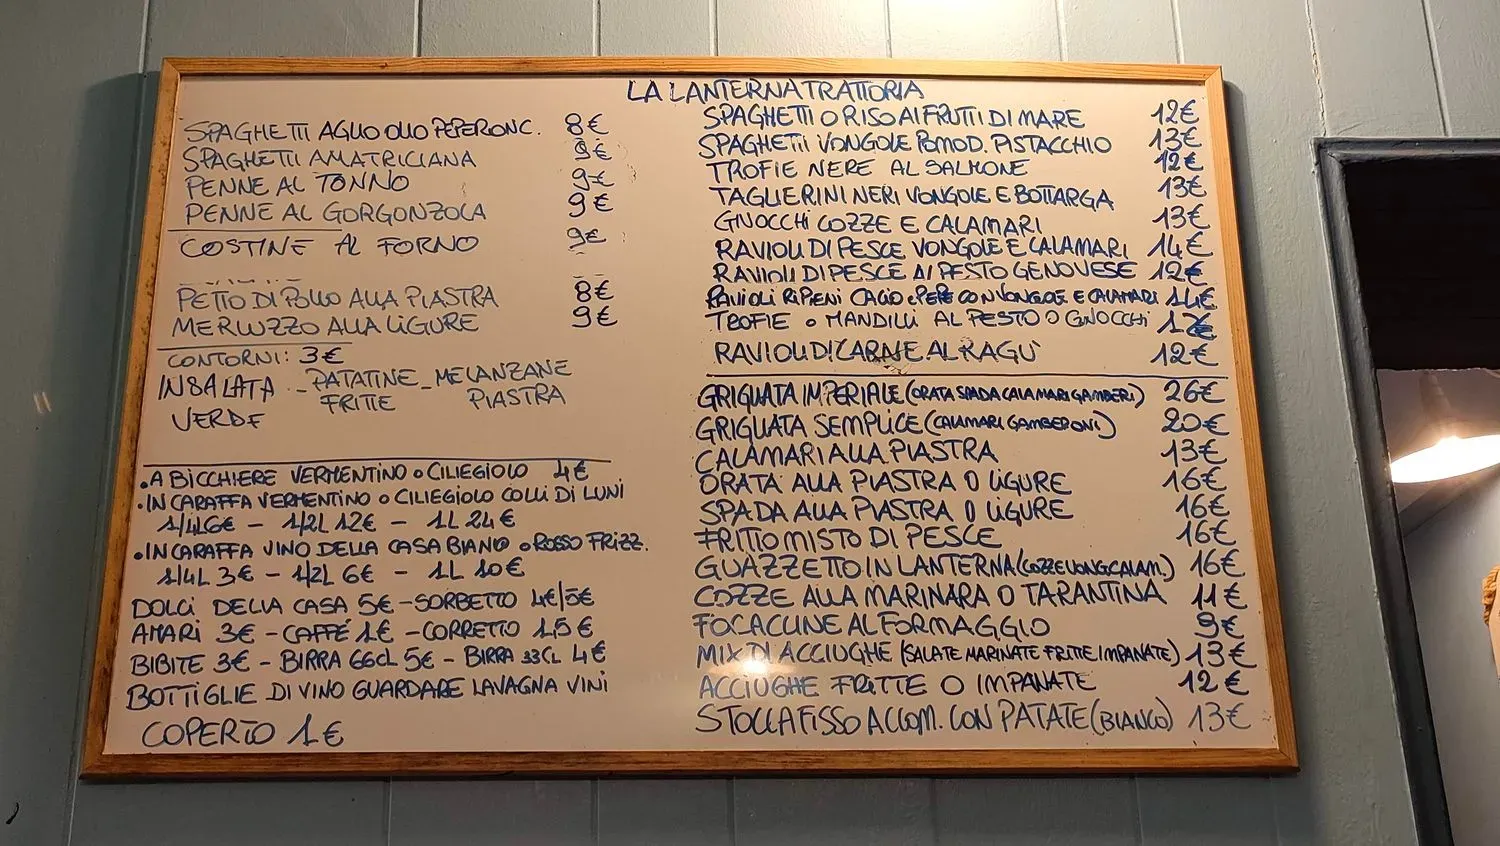 LA LANTERNA TRATTORIA
SPAGHETTI AGLIO OLIO PEPERONC. 8€
SPAGHETTI AMATRICIANA 9€
PENNE AL TONNO 9€
PENNE AL GORGONZOLA 9€
COSTINE AL FORNO 9€
PETTO DI POLLO ALLA PIASTRA 8€
MERLUZZO ALLA LIGURE 9€
CONTORNI: 3€
INSALATA - PATATINE - MELANZANE
VERDE FRITTE PIASTRA
.A BICCHIERE VERMENTINO O CILIEGIOLO 4€
.IN CARAFFA VERMENTINO O CILIEGIOLO COLLI DI LUNI
1/4 6€ - 1/2L 12€ - 1L 24€
.IN CARAFFA VINO DELLA CASA BIANO O ROSSO FRIZZ.
1/4L 3€ - 1/2L 6€ - 1L 10€
DOLCI DELLA CASA 5€ - SORBETTO 4€/5€
AMARI 3€ - CAFFÈ 1€ - CORRETTO 1,5€
BIBITE 3€ - BIRRA 66CL 5€ - BIRRA 33CL 4€
BOTTIGLIE DI VINO GUARDARE LAVAGNA VINI
COPERTO 1€
SPAGHETTI O RISO AI FRUTTI DI MARE 12€
SPAGHETTI VONGOLE POMOD. PISTACCHIO 13€
TROFIE NERE AL SALMONE 12€
TAGLIERINI NERI VONGOLE E BOTTARGA 13€
GNOCCHI COZZE E CALAMARI 13€
RAVIOLI DI PESCE VONGOLE E CALAMARI 14€
RAVIOLI DI PESCE AL PESTO GENOVESE 12€
RAVIOLI RIPIENI CACIO e PEPE CON VONGOLE E CALAMARI 14€
TROFIE O MANDILLI AL PESTO O GNOCCHI 12€
RAVIOLI DI CARNE AL RAGÙ 12€
GRIGLIATA IMPERIALE (ORATA SPADA CALAMARI GAMBERI) 26€
GRIGLIATA SEMPLICE (CALAMARI GAMBERONI) 20€
CALAMARI ALLA PIASTRA 13€
ORATA ALLA PIASTRA O LIGURE 16€
SPADA ALLA PIASTRA O LIGURE 16€
FRITTO MISTO DI PESCE 16€
GUAZZETTO IN LANTERNA (COZZE VONG. CALAM.) 16€
COZZE ALLA MARINARA O TARANTINA 11€
FOCACCINE AL FORMAGGIO 9€
MIX DI ACCIUGHE (SALATE MARINATE FRITTE IMPANATE) 13€
ACCIUGHE FRITTE O IMPANATE 12€
STOCCAFISSO ACCOM. CON PATATE (BIANCO) 13€